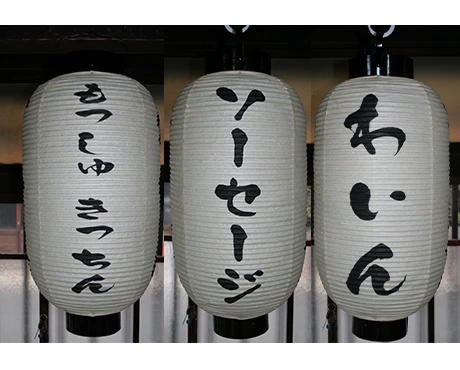 もっしゅ きっちん
ソーセージ
わいん